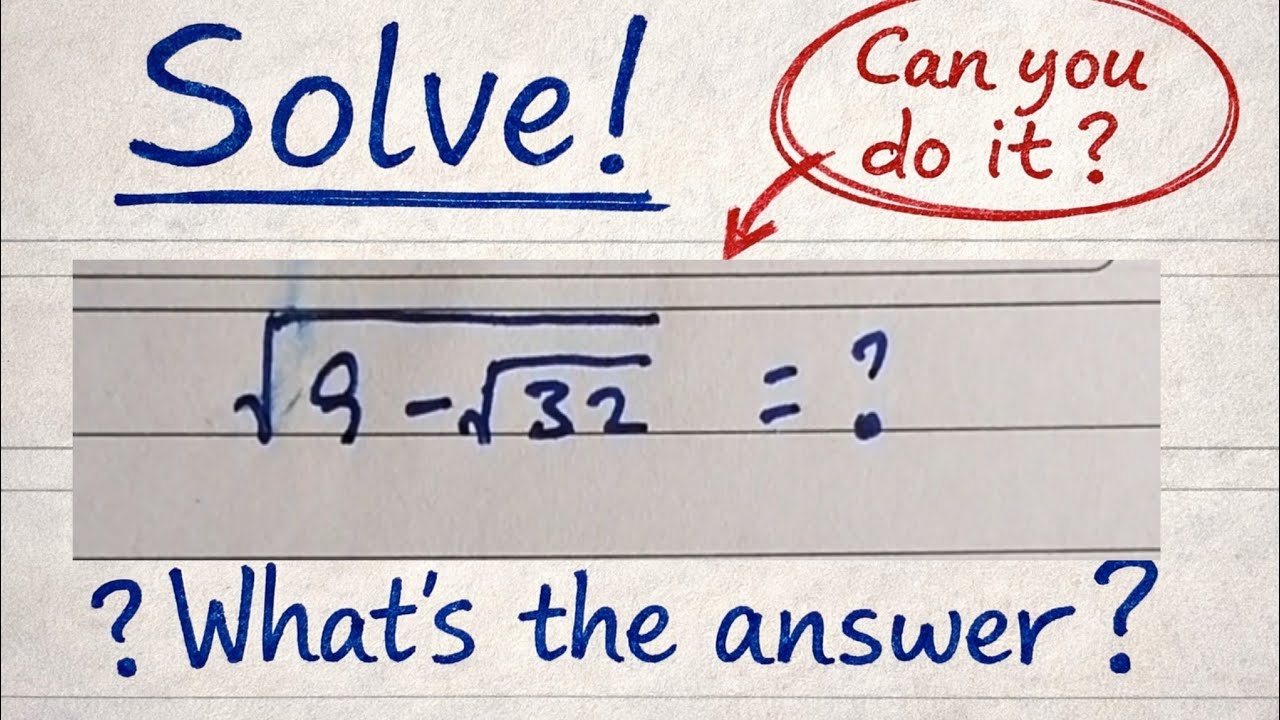 Solve!
Can you
do it?
√(9 - √32) = ?
? What's the answer ?